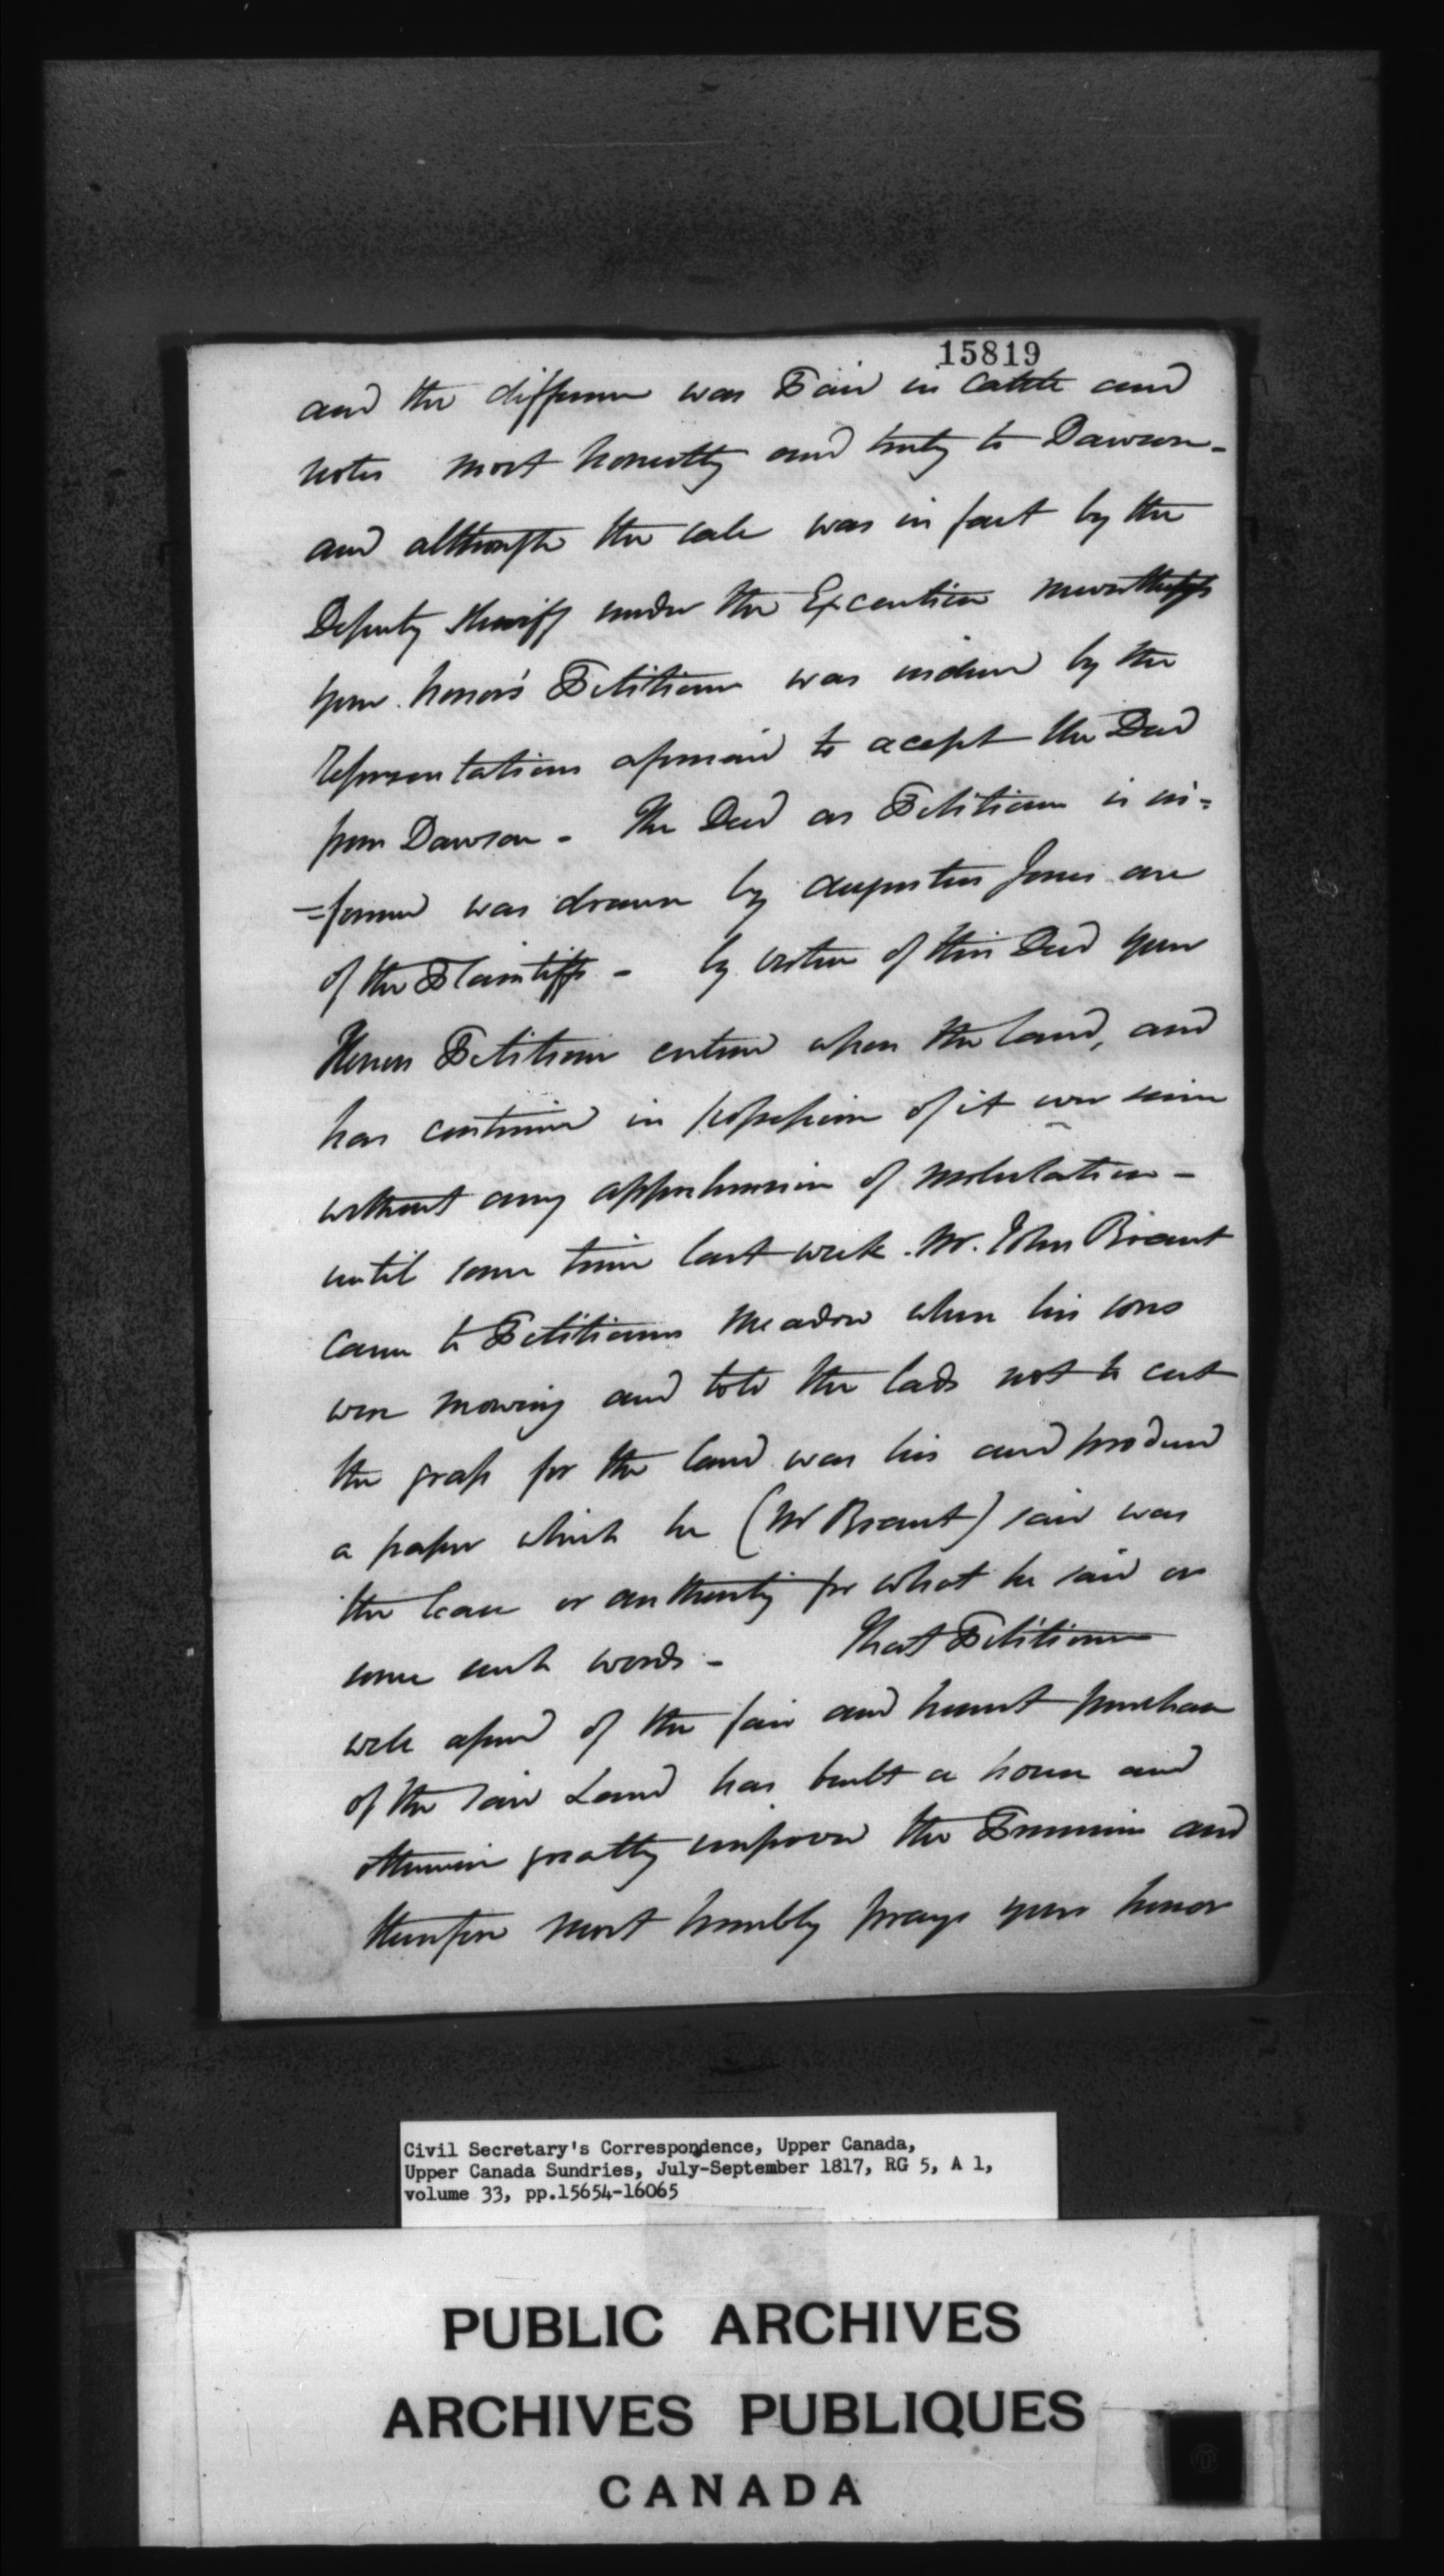 15819
and the difference was Paid in Cattle and
notes most honestly and truly to Dawson -
and although the sale was in fact by the
Deputy Sheriff under the Execution nevertheless
your honor's Petitioner was induced by the
representations aforesaid to acept the Deed
from Dawson - The Deed as Petitioner is in=
=formed was drawn by Augustus Jones one
of the Plaintiffs - by virtue of this Deed your
Honors Petitioner entered upon the land, and
has continued in possession of it ever since
without any apprehension of molestation -
until some time last week Mr. John Brant
came to Petitioners Meadow when his sons
were mowing and told the lads not to cut
the grass for the land was his and produced
a paper which he (Mr Brant) said was
the lease or authority for what he said or
some such words - That Petitioner
well assured of the fair and honest purchase
of the said Land has built a house and
otherwise greatly improved the Premises and
therefore most humbly prays your honor
Civil Secretary's Correspondence, Upper Canada,
Upper Canada Sundries, July-September 1817, RG 5, A 1,
volume 33, pp.15654-16065
PUBLIC ARCHIVES
ARCHIVES PUBLIQUES
CANADA